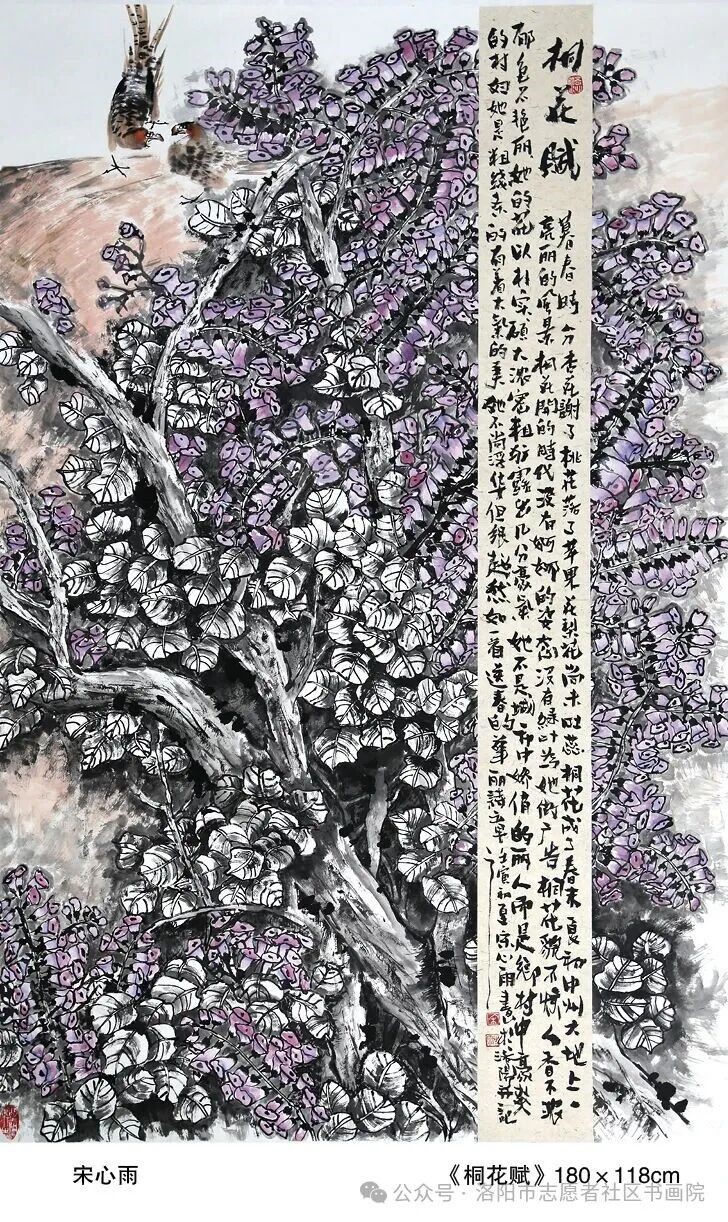 桐花赋
暮春時分杏花謝了桃花落了苹果花梨花尚未吐蕊桐花成了春末夏初中州大地上一
亮丽的風景桐花開的時代没有婀娜的姿态没有绿叶为她做广告桐花貌不惊人香不浓
郁色不艳丽她的花以朴实硕大浓密粗犷露出几分豪气她不是城市中娇俏的丽人而是乡村中豪爽
的村妇她是粗线条的有着大气的美她不尚浮华但很超然如一首送春的華丽詩章壬寅初夏宋心雨書於洛陽并記
宋心雨
《桐花赋》180×118cm
公众号·洛阳市志愿者社区书画院